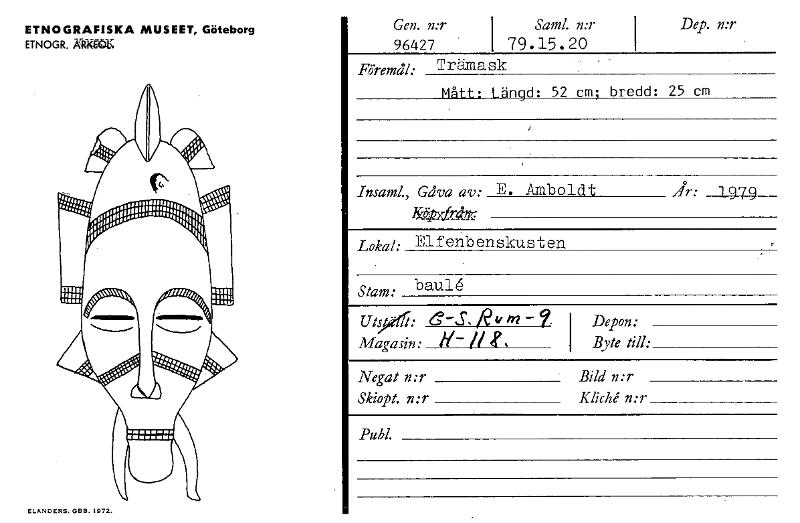 ETNOGRAFISKA MUSEET, Göteborg
ETNOGR. ARKEOL.
Gen. n:r Saml. n:r Dep. n:r
96427 79.15.20
Föremål: Trämask
Mått: Längd: 52 cm; bredd: 25 cm
Insaml., Gåva av: E. Amboldt År: 1979
Köp från:
Lokal: Elfenbenskusten
Stam: baulé
Utställt: G-S. Rum-9 Depon:
Magasin: H-118. Byte till:
Negat n:r Bild n:r
Skiopt. n:r Kliché n:r
Publ.
ELANDERS. GBB. 1972.